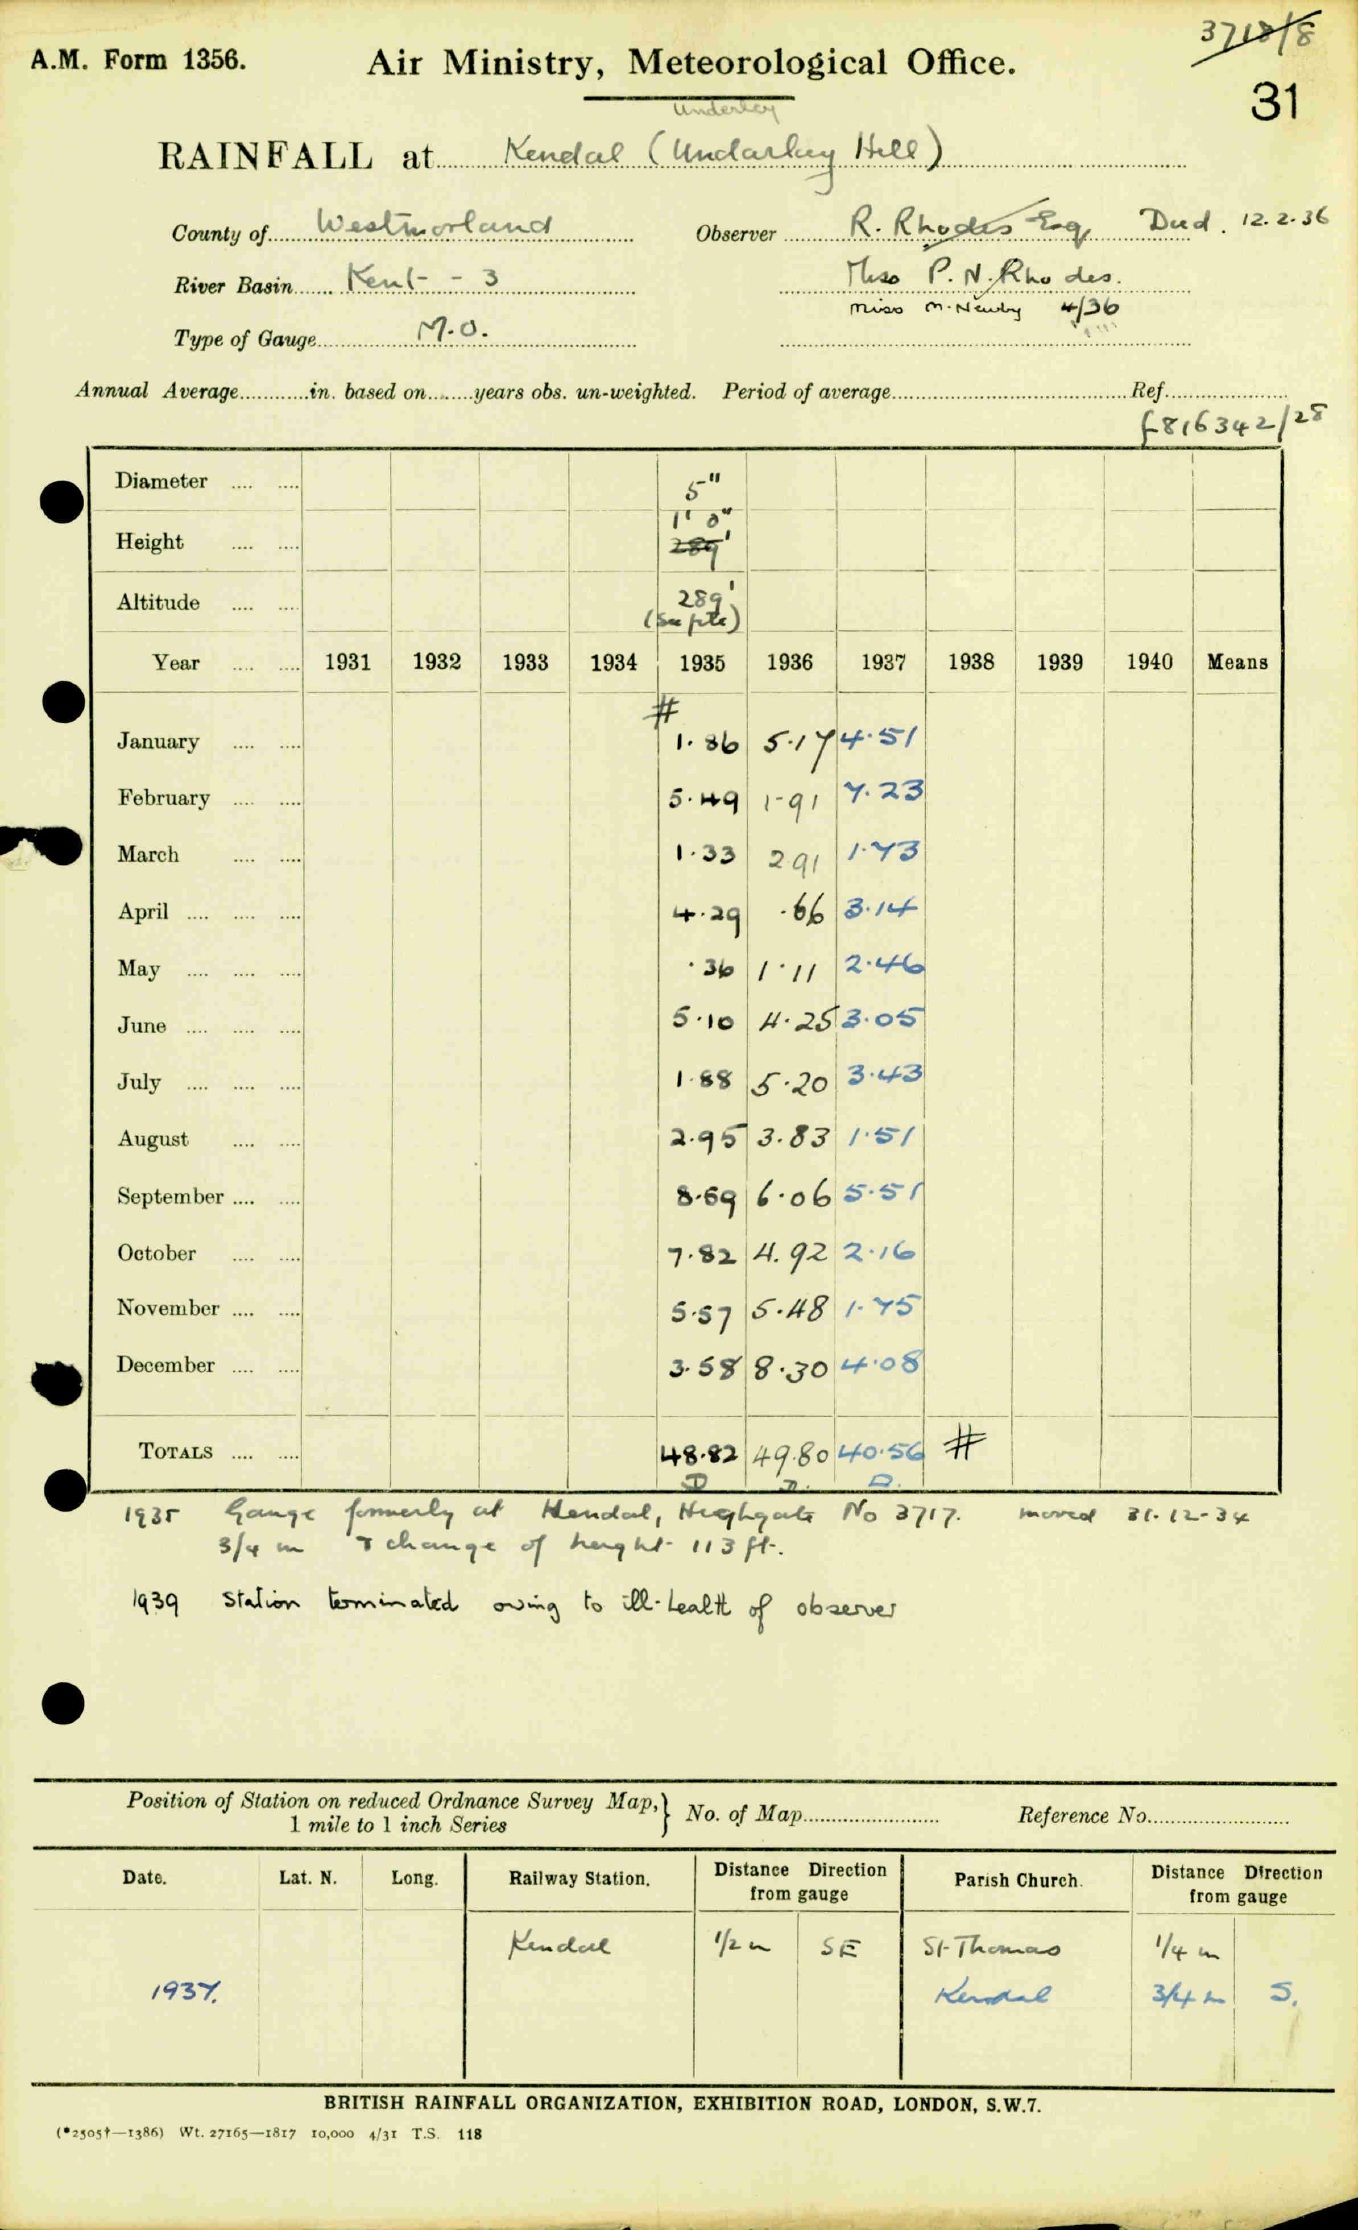 3718/8
A.M. Form 1356.
Air Ministry, Meteorological Office.
31
Underley
RAINFALL at Kendal (Undarlay Hill)
County of Westmorland Observer R. Rhodes Esq. Died. 12.2.36
River Basin Kent - 3 Miss P. N. Rhodes.
Miss M. Newby 4/36
Type of Gauge M.O.
Annual Average in. based on years obs. un-weighted. Period of average Ref.
f816342/28
Diameter 5"
Height 1' 0" 289'
Altitude 289'
(See file)
Year 1931 1932 1933 1934 1935 1936 1937 1938 1939 1940 Means
#
January 1.86 5.17 4.51
February 5.49 1.91 7.23
March 1.33 2.91 1.73
April 4.29 .66 3.14
May .36 1.11 2.46
June 5.10 4.25 3.05
July 1.88 5.20 3.43
August 2.95 3.83 1.51
September 8.59 6.06 5.51
October 7.82 4.92 2.16
November 5.57 5.48 1.75
December 3.58 8.30 4.08
TOTALS 48.82 49.80 40.56 #
D D. D.
1935 Gauge formerly at Kendal, Highgate No 3717. moved 31.12.34
3/4 m & change of height 113 ft.
1939 Station terminated owing to ill-health of observer
Position of Station on reduced Ordnance Survey Map,
1 mile to 1 inch Series } No. of Map Reference No.
Date. Lat. N. Long. Railway Station. Distance Direction from gauge Parish Church. Distance Direction from gauge
Kendal 1/2 m SE St Thomas 1/4 m
1937. Kendal 3/4 m S.
BRITISH RAINFALL ORGANIZATION, EXHIBITION ROAD, LONDON, S.W.7.
(*2505†—1386) Wt. 27165—1817 10,000 4/31 T.S. 118